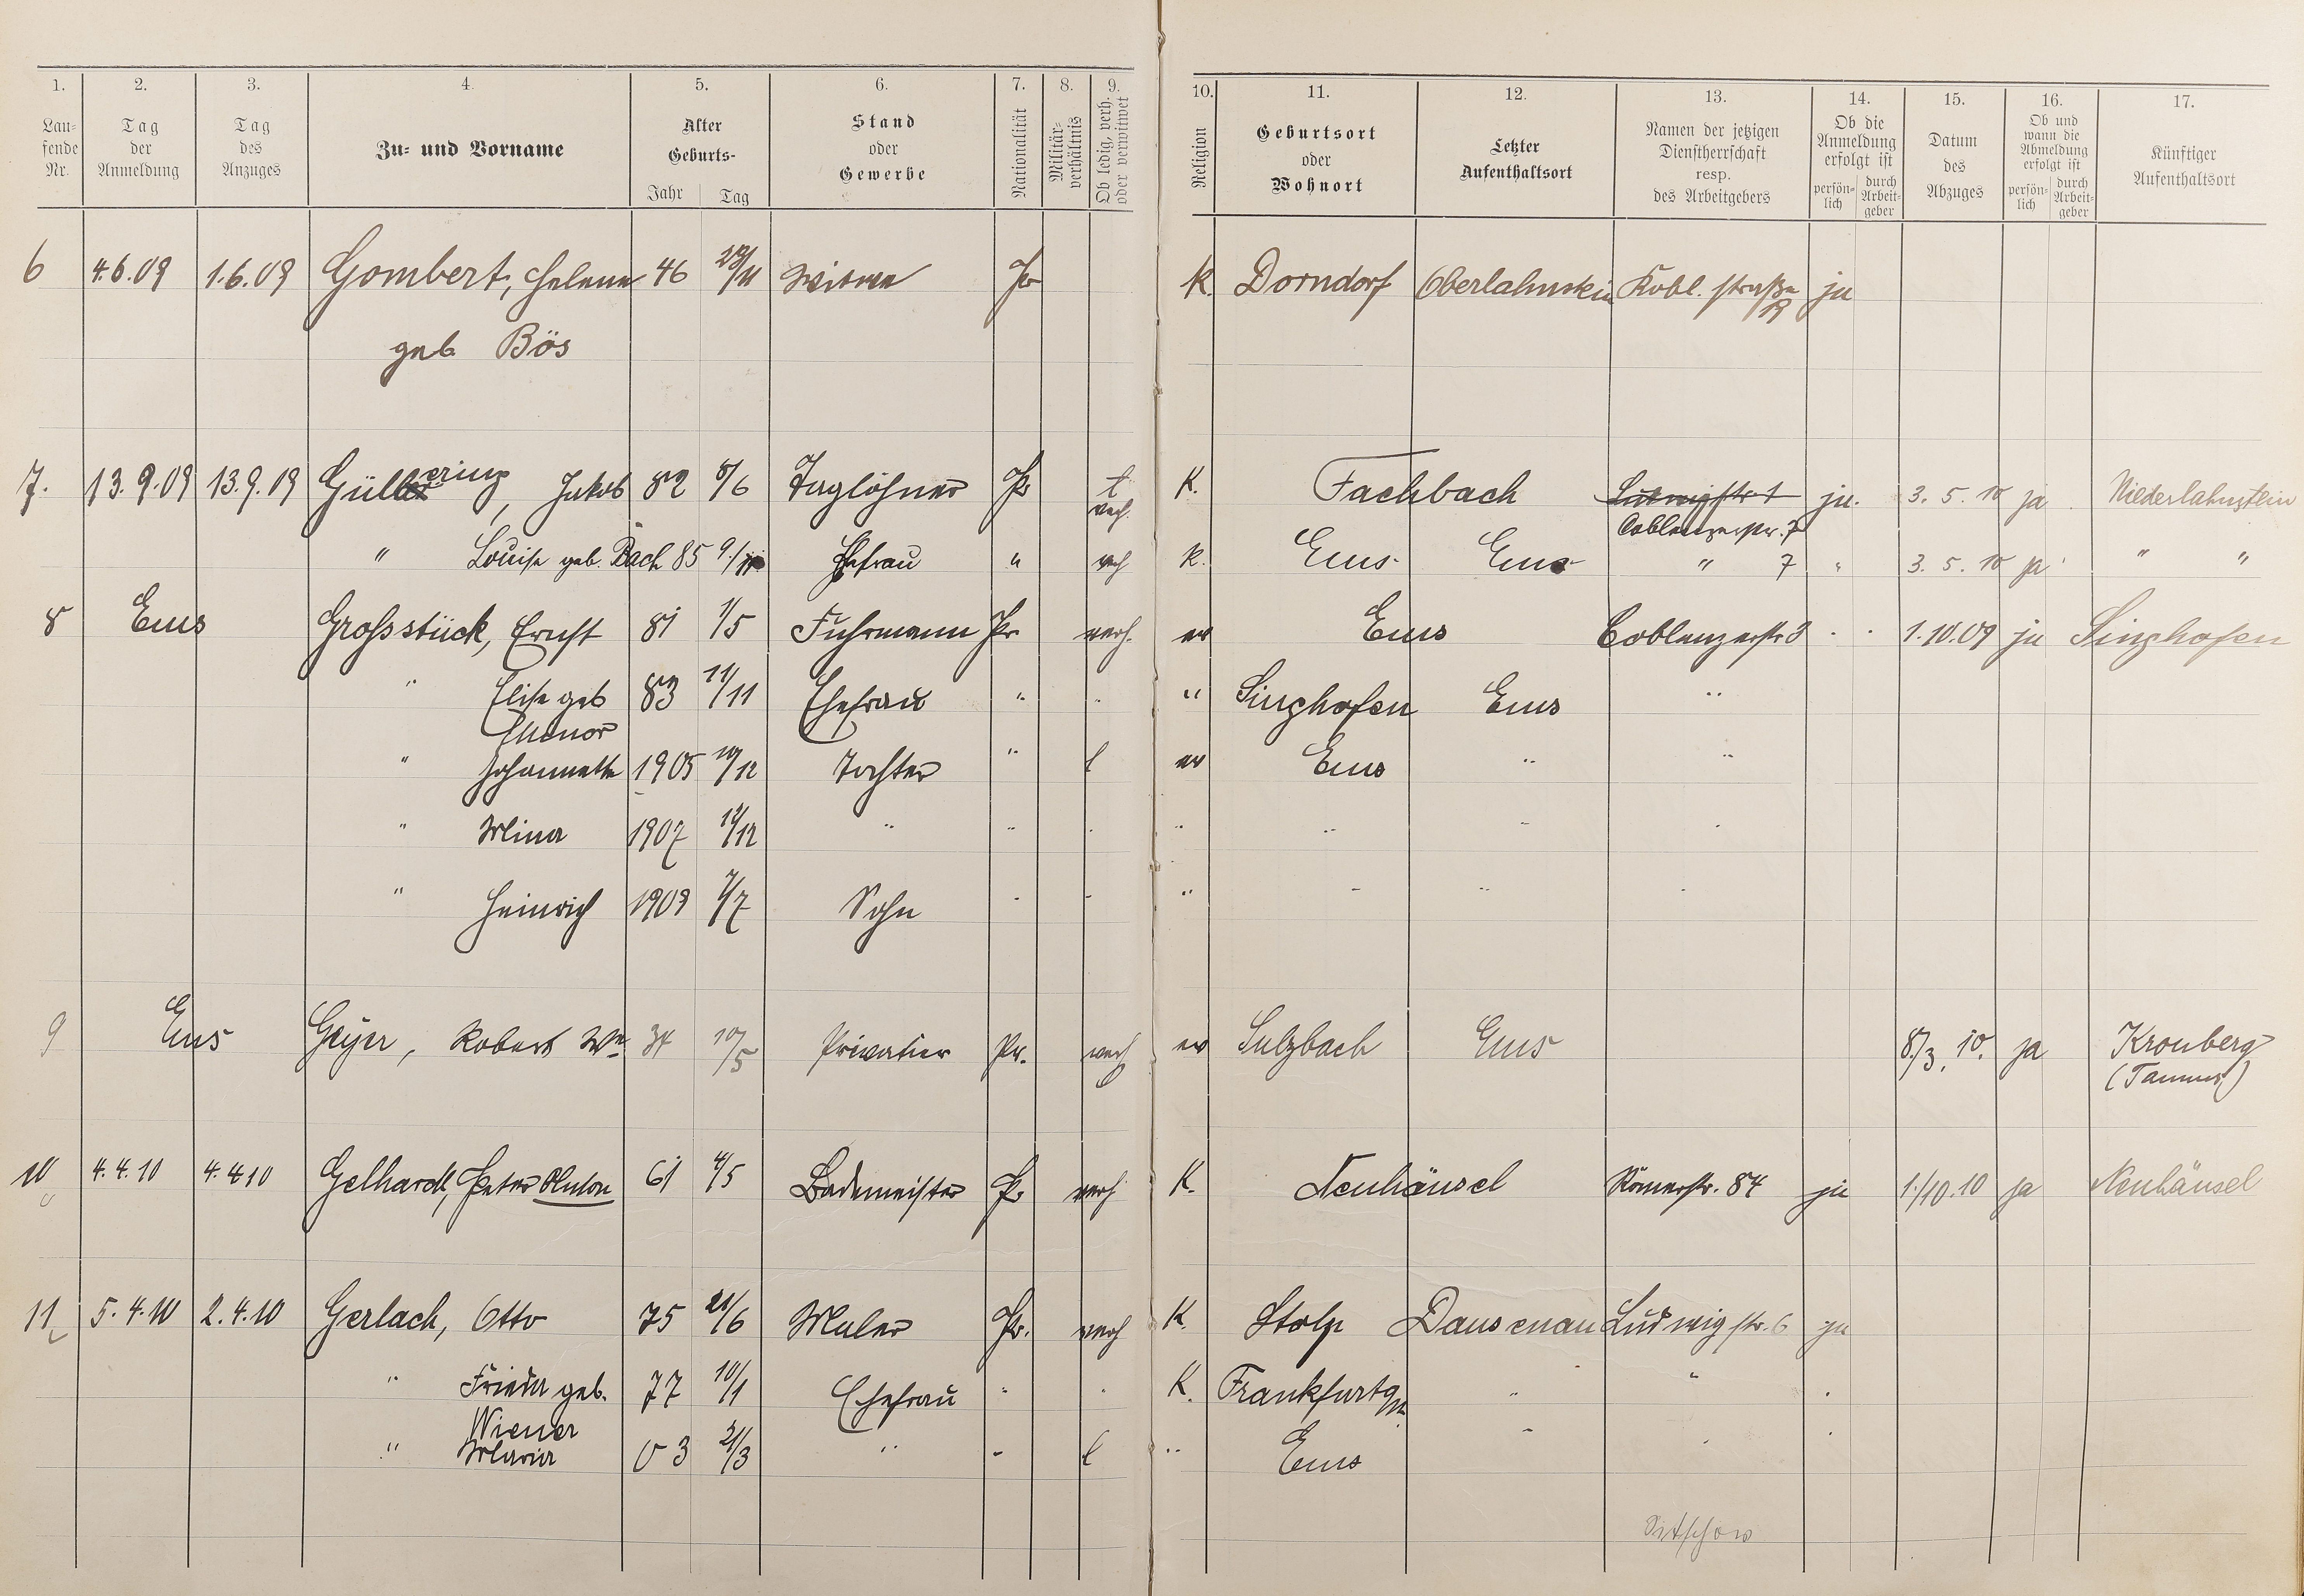 1. 2. 3. 4. 5. 6. 7. 8. 9. 10. 11. 12. 13. 14. 15. 16. 17.
Lau-
fende
Nr.
Tag
der
Anmeldung
Tag
des
Anzuges
Zu- und Vorname
Alter
Geburts-
Jahr Tag
Stand
oder
Gewerbe
Nationalität
Militär-
verhältnis
Ob ledig, verh.
oder verwitwet
Religion
Geburtsort
oder
Wohnort
Letzter
Aufenthaltsort
Namen der jetzigen
Dienstherrschaft
resp.
des Arbeitgebers
Ob die
Anmeldung
erfolgt ist
persön-
lich
durch
Arbeit-
geber
Datum
des
Abzuges
Ob und
wann die
Abmeldung
erfolgt ist
persön-
lich
durch
Arbeit-
geber
Künftiger
Aufenthaltsort
6 4.6.09 1.6.09 Gombert, Helene 46 Witwe Pr K. Dorndorf Oberlahnstein Kobl. straße ja
geb. Bös
7. 13.9.09 13.9.09 Güllering, Jakob 82 8/6 Taglöhner Pr l K. Fachbach Ludwigstr. 1 ja. 3. 5. 10 ja Niederlahnstein
verh. Coblenzerstr. 7
" Louise geb. Bach 85 Ehefrau " verh K. Ems Ems " 7 " 3. 5. 10 ja " "
8 Ems Grossstück, Ernst 81 1/5 Fuhrmann Pr. verh. ev Ems Coblenzerstr 3 1.10.09 ja Singhofen
" Elise geb 83 11/11 Ehefrau " " Singhofen Ems "
" Johannette 1905 10/12 Tochter " l ev Ems " "
" Mina 1907 " " " "
" Heinrich 1909 7/7 Sohn " "
9 Ems Geyer, Robert Wm 34 10/5 Privatier Pr. verh ev Sulzbach Ems 8/3. 10. ja Kronberg
(Taunus)
10 4.4.10 4.4.10 Gelhardt, Peter Anton 61 4/5 Bademeister Pr verh K. Neuhäusel Römerstr. 84 ja 1./10.10 ja Neuhäusel
11 5.4.10 2.4.10 Gerlach, Otto 75 21/6 Maler Pr. verh K. Stolp Dausenau Ludwigstr. 6 ja
" Frieda geb. 77 10/1 Ehefrau " K. Frankfurt a/M " "
Wiener
" Maria 03 21/3 " l " Ems